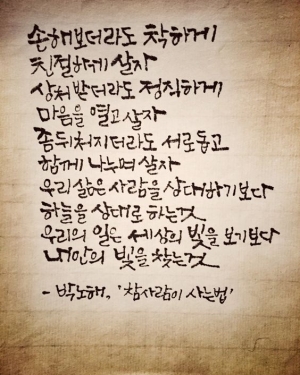 손해보더라도 착하게
친절하게 살자
상처 받더라도 정직하게
마음을 열고 살자
좀 뒤처지더라도 서로돕고
함께 나누며 살자
우리 삶은 사람을 상대하기보다
하늘을 상대로 하는것
우리의 일은 세상의 빛을 보기보다
내 안의 빛을 찾는것
- 박노해, '참사람이 사는법'